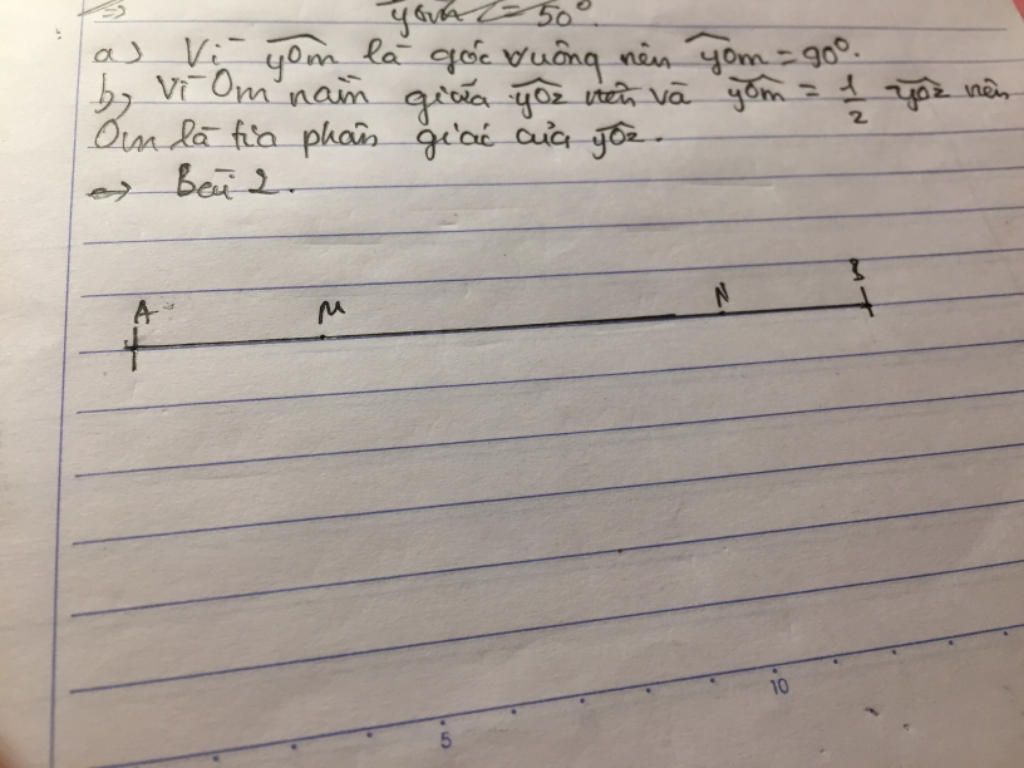 => yOm = 50°.
a) Vì yOm là góc vuông nên yOm = 90°.
b, Vì Om nằm giữa yOz nên và yOm = 1/2 yOz nên
Om là tia phân giác của yOz.
=> Bài 2.
A M N B
5 10